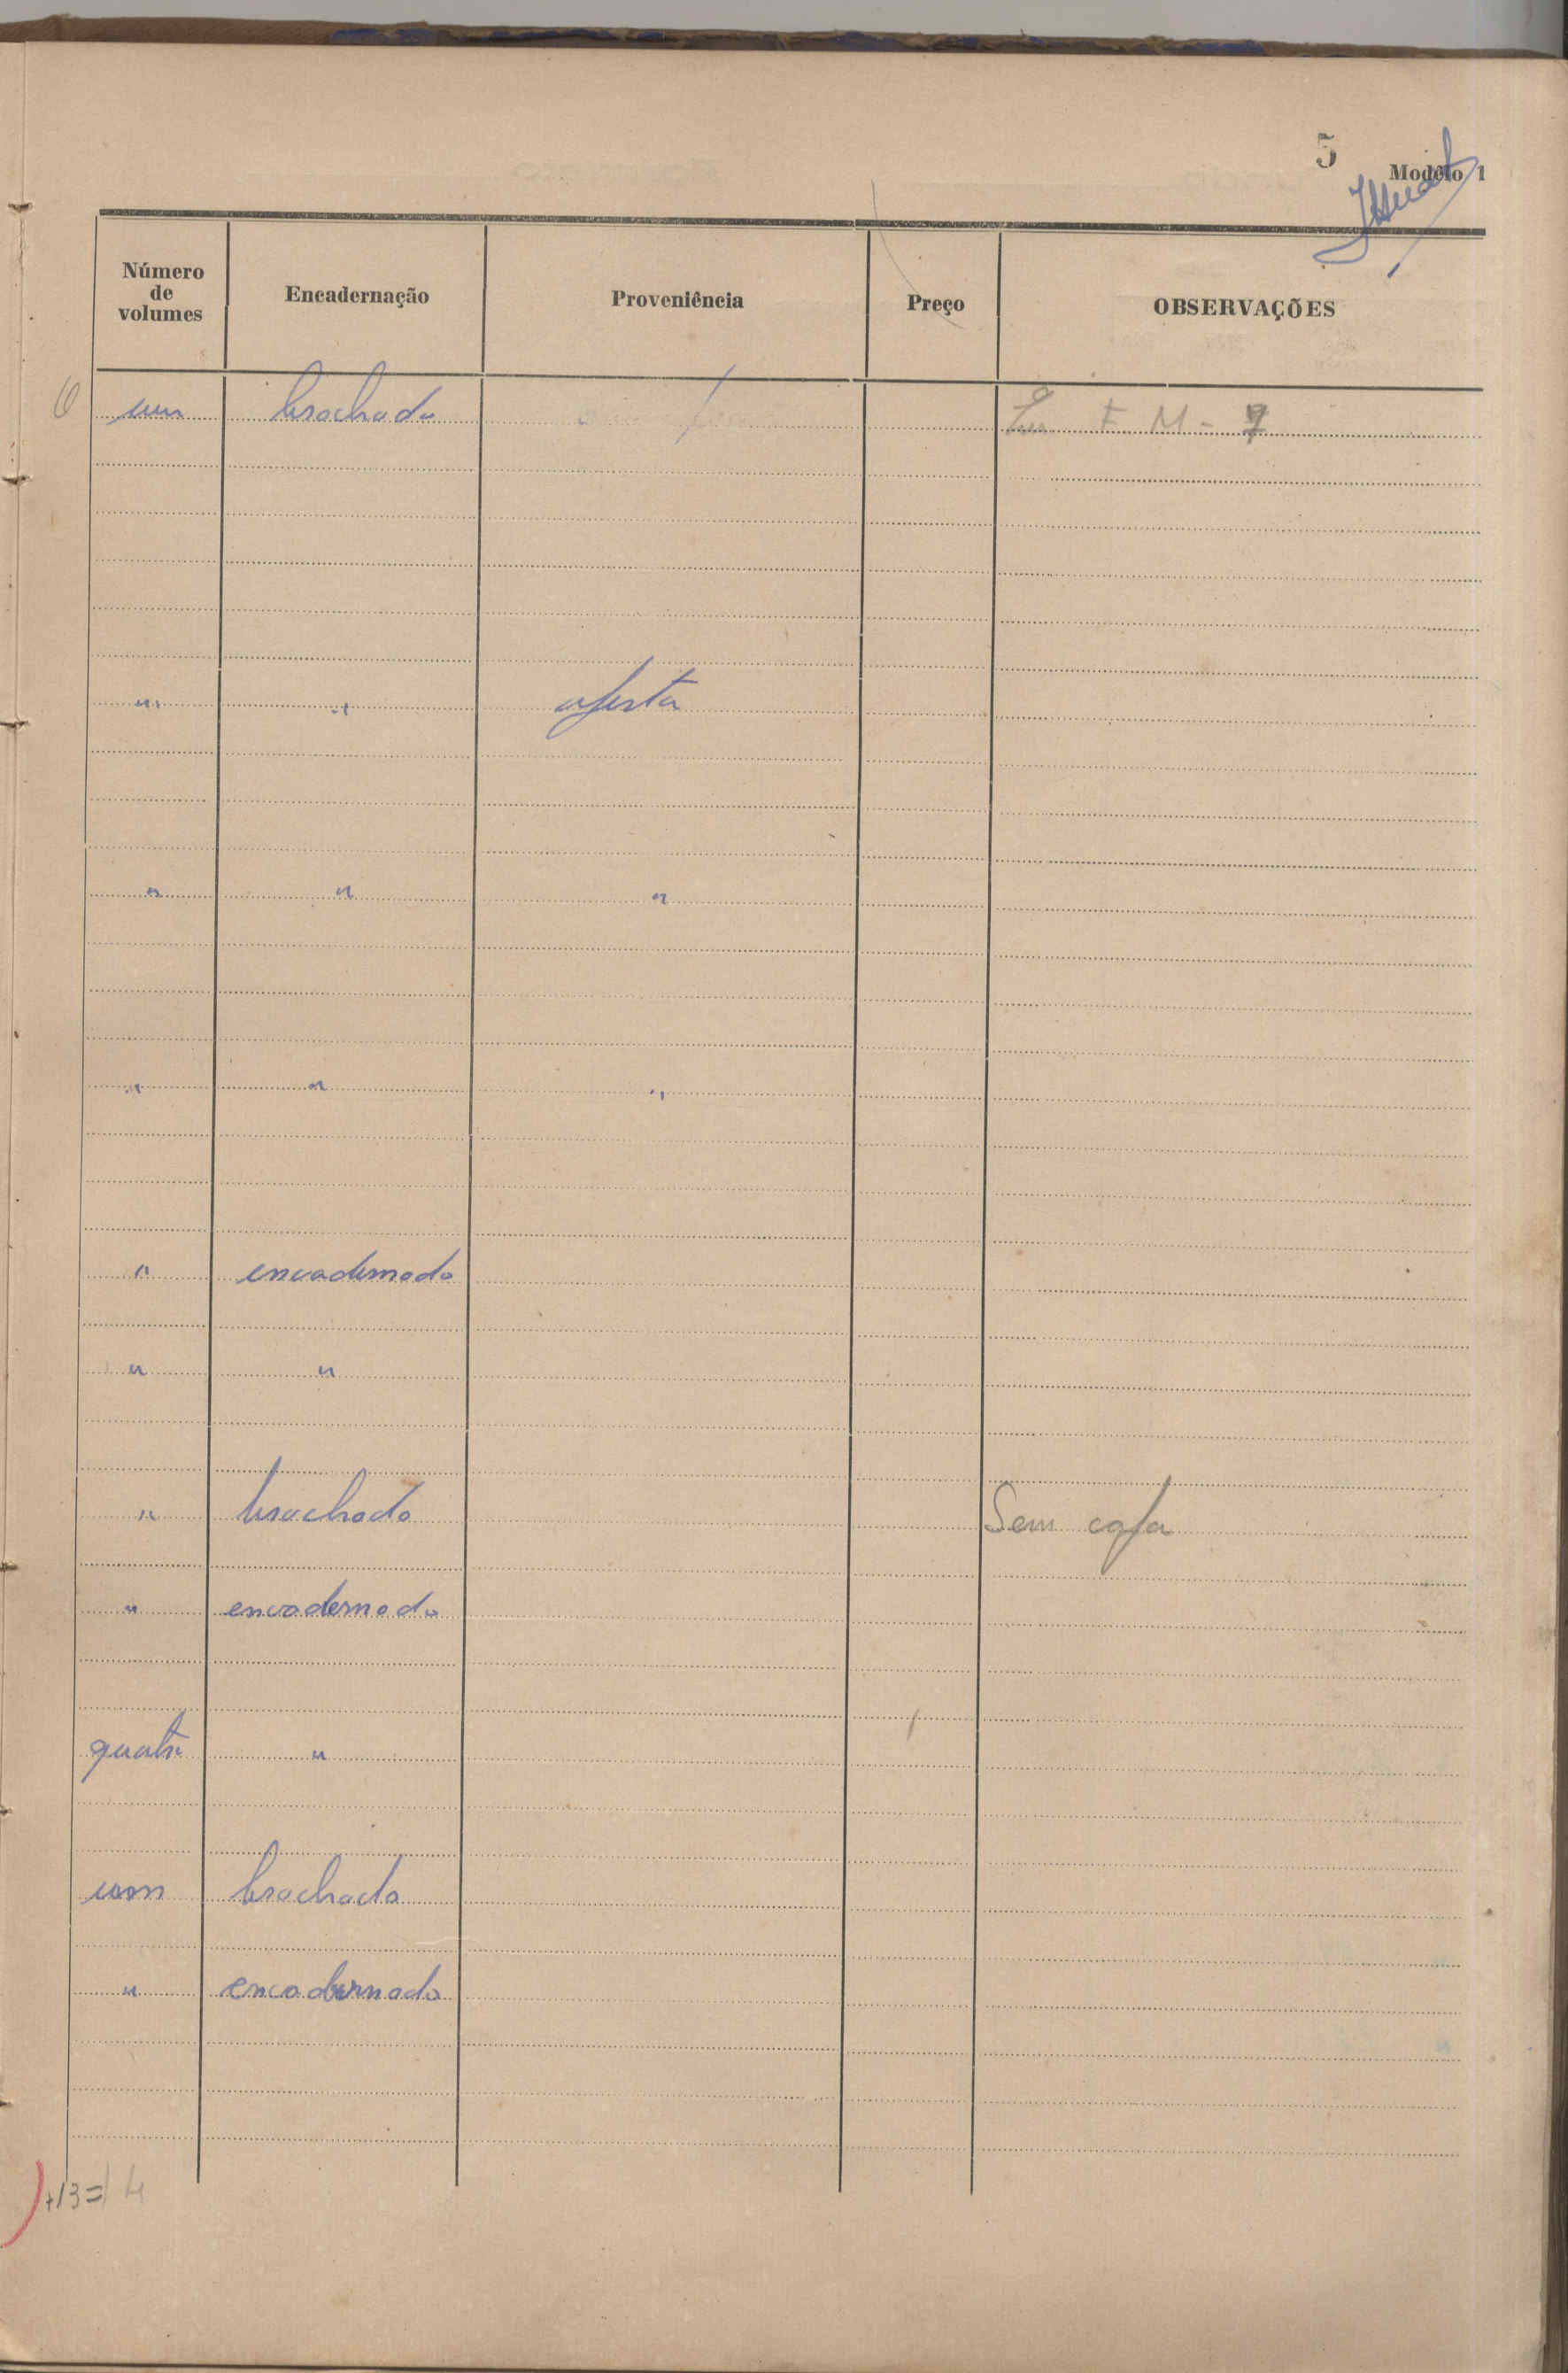 5
Modêlo 1
Número de volumes Encadernação Proveniência Preço OBSERVAÇÕES
um brochado F M - 9
" " oferta
" " "
" " "
" encadernado
" "
" brochado Sem capa
" encadernado
quatro "
um brochado
" encadernado
+13=14